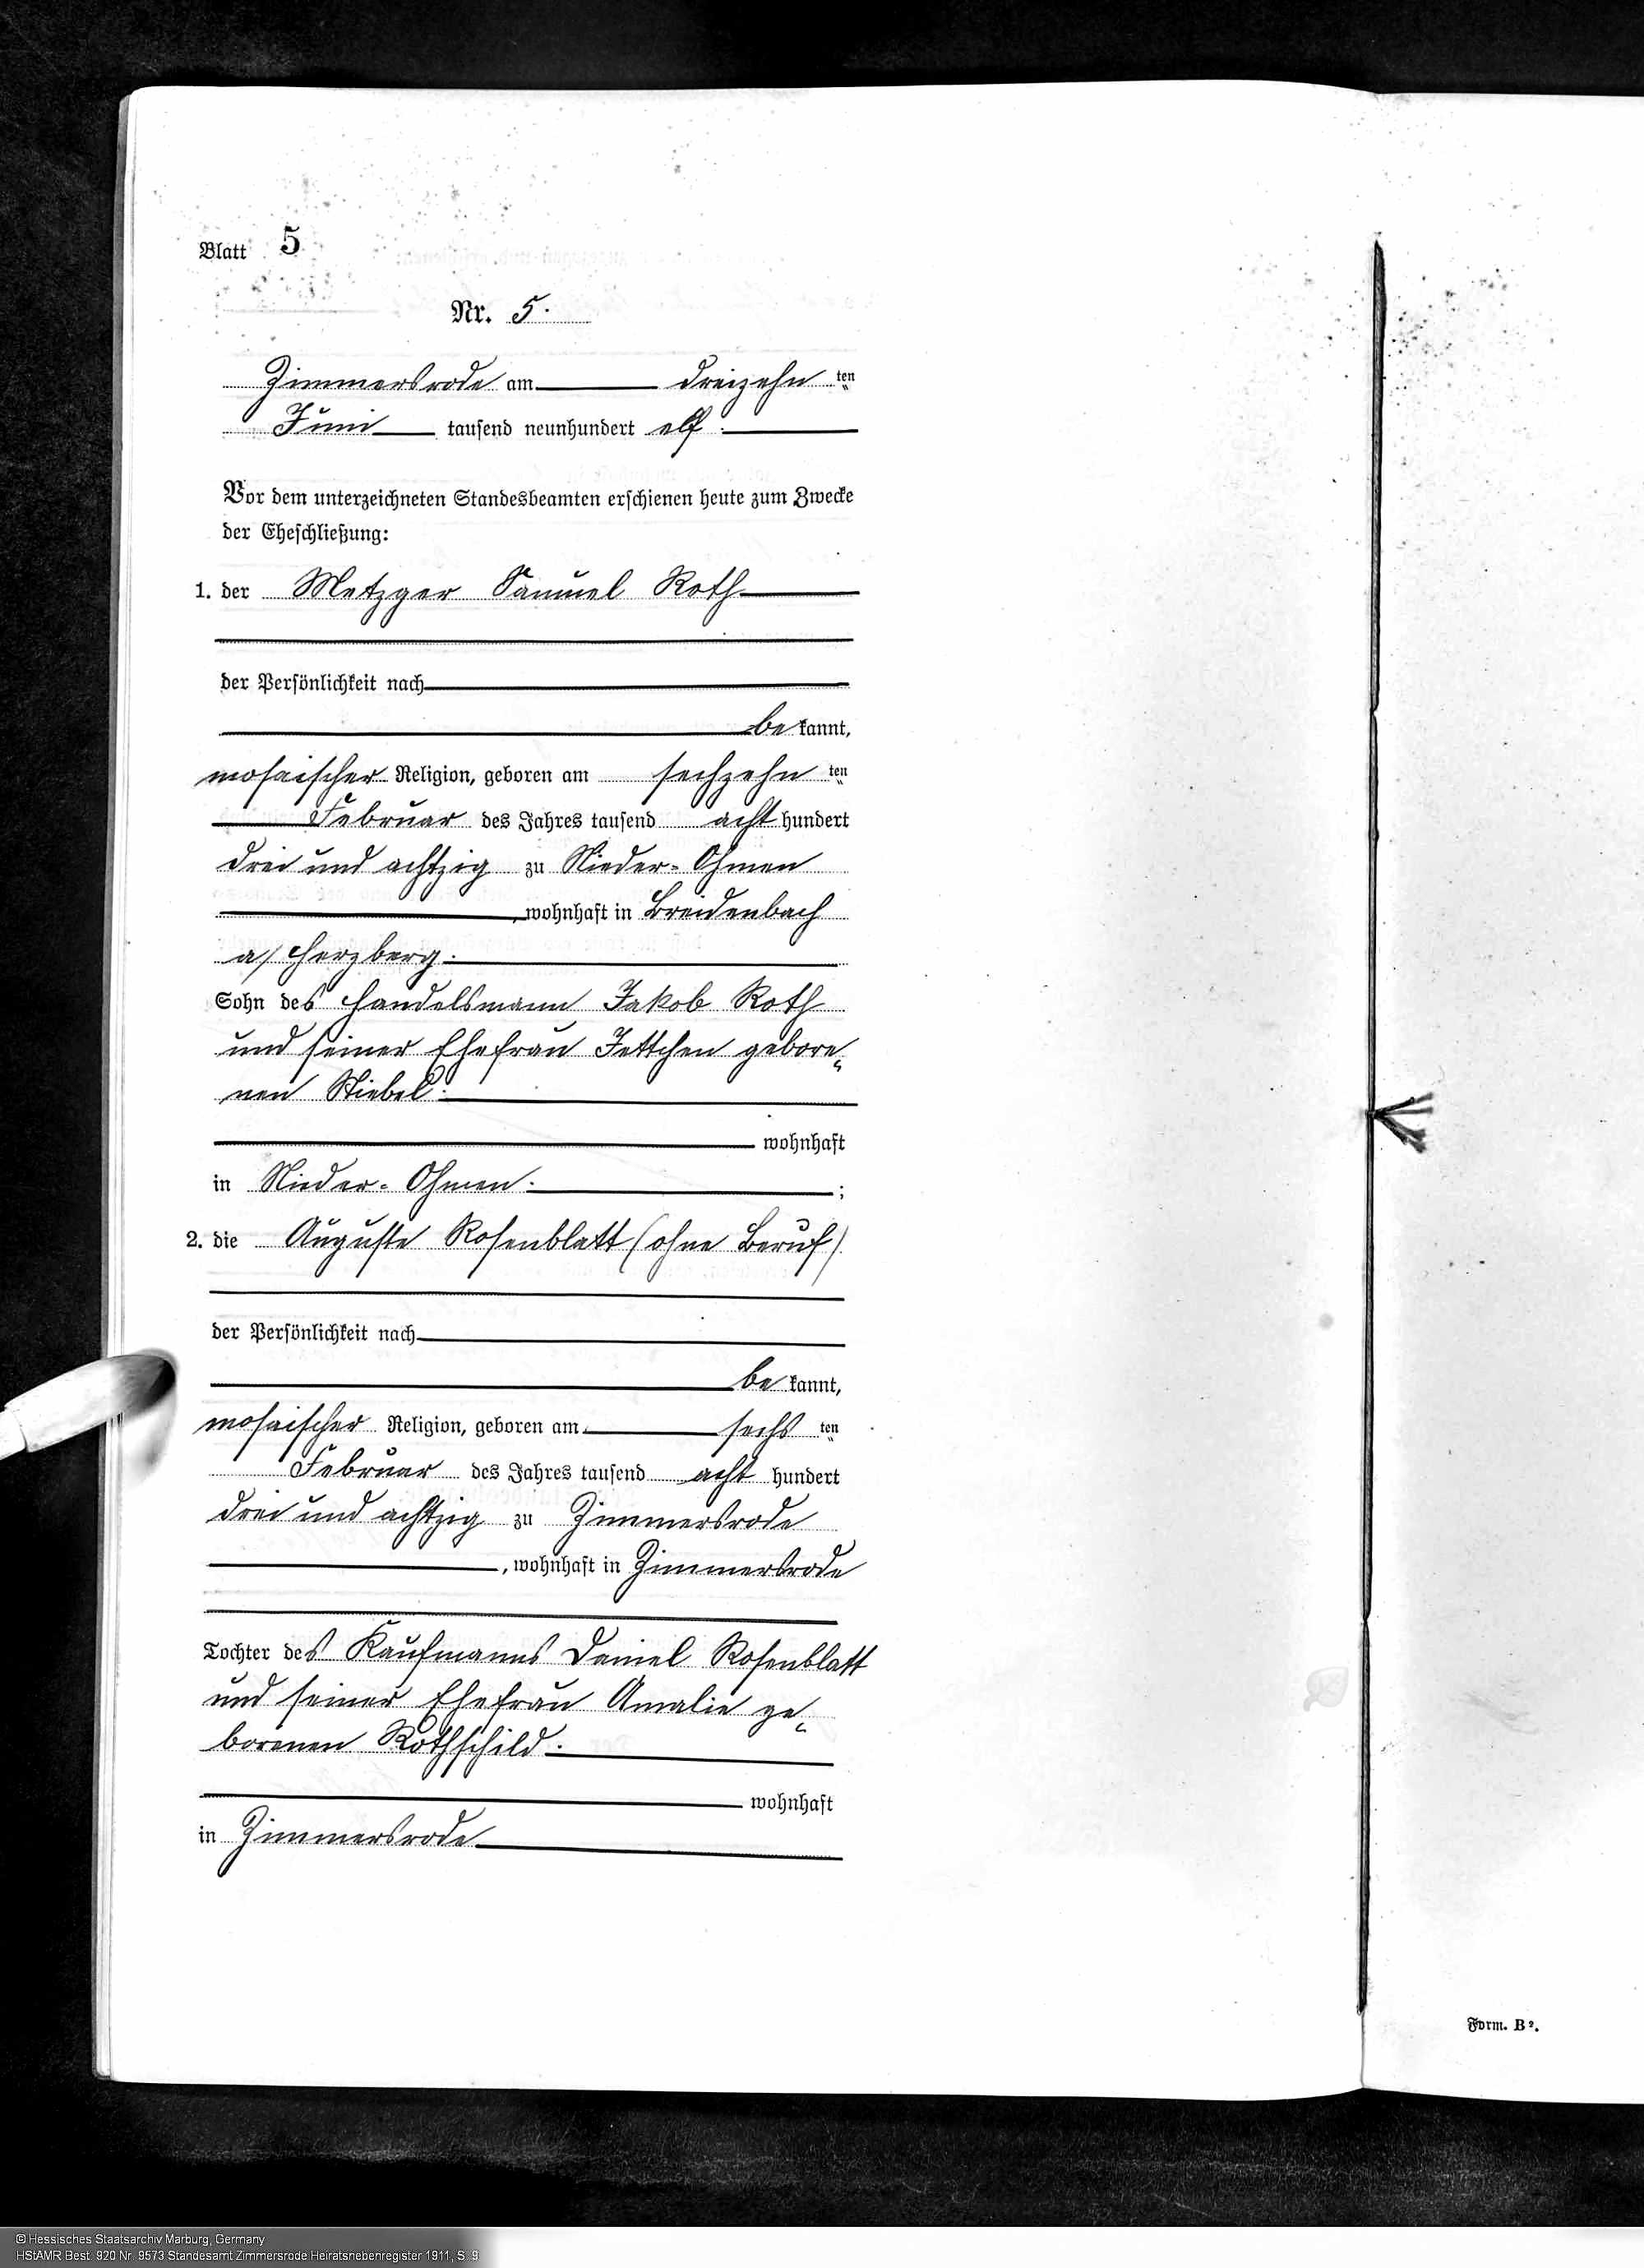 Blatt 5
Nr. 5.
Zimmersrode am dreizehn ten
Juni tausend neunhundert elf.
Vor dem unterzeichneten Standesbeamten erschienen heute zum Zwecke
der Eheschließung:
1. der Metzger Samuel Roth
der Persönlichkeit nach
be kannt,
mosaischer Religion, geboren am sechzehn ten
Februar des Jahres tausend acht hundert
drei und achtzig zu Nieder-Ohmen
, wohnhaft in Breidenbach
a/ Herzberg.
Sohn des Handelsmann Jakob Roth
und seiner Ehefrau Jettchen gebore-
nen Stiebel.
wohnhaft
in Nieder-Ohmen. ;
2. die Auguste Rosenblatt (ohne Beruf)
der Persönlichkeit nach
be kannt,
mosaischer Religion, geboren am sechs ten
Februar des Jahres tausend acht hundert
drei und achtzig zu Zimmersrode
, wohnhaft in Zimmersrode
Tochter des Kaufmanns Daniel Rosenblatt
und seiner Ehefrau Amalie ge-
borenen Rothschild.
wohnhaft
in Zimmersrode
Form. B².
© Hessisches Staatsarchiv Marburg, Germany
HStAMR Best. 920 Nr. 9573 Standesamt Zimmersrode Heiratsnebenregister 1911, S. 9